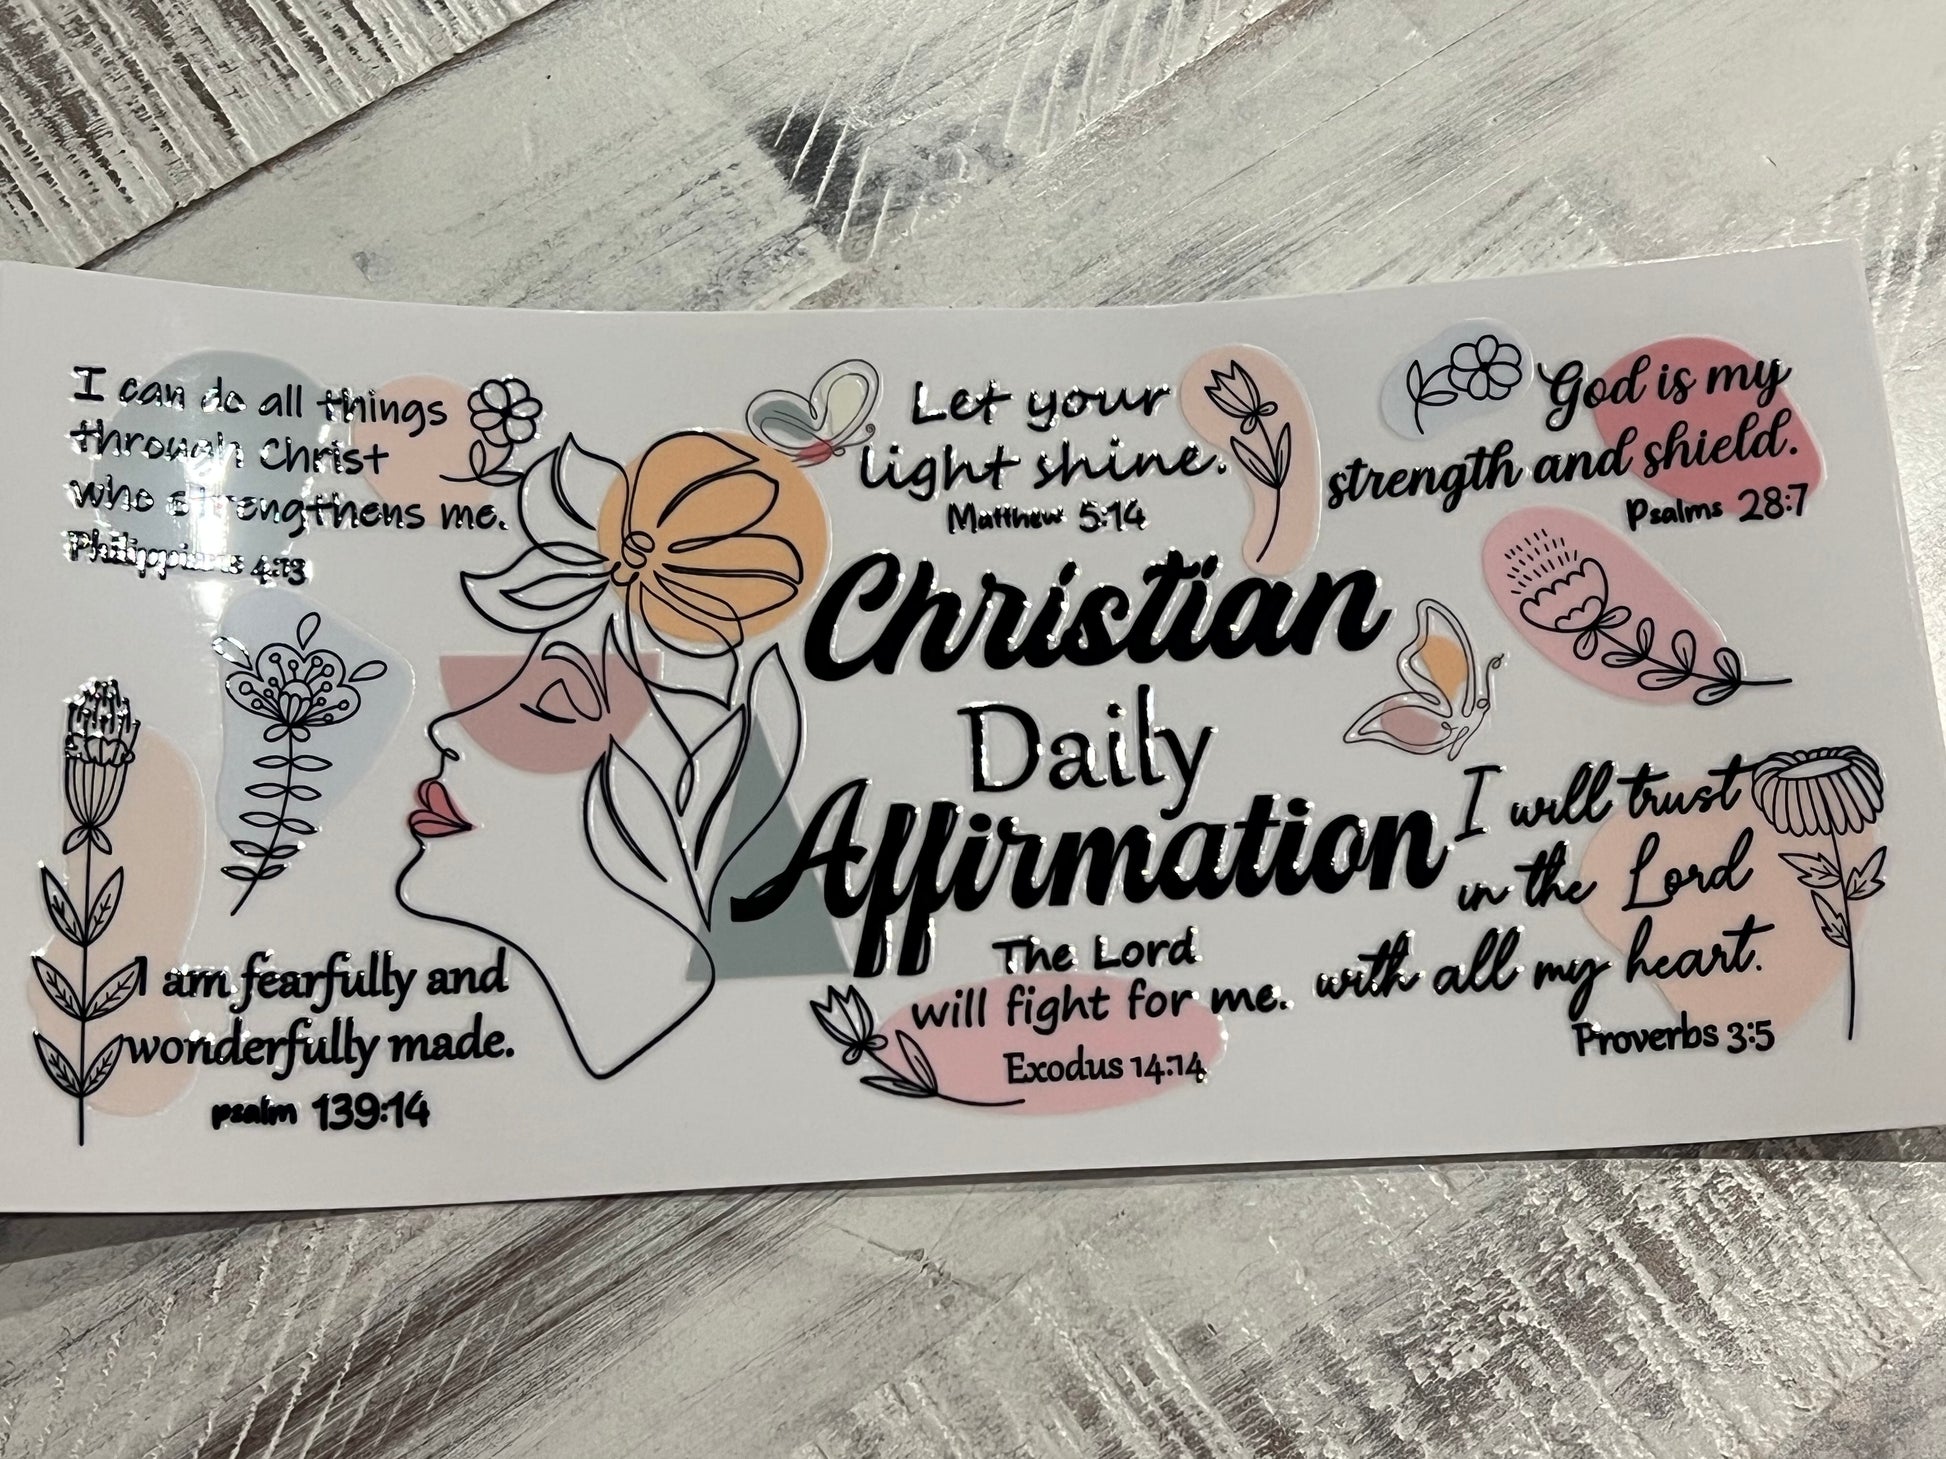 I can do all things
through Christ
who strengthens me.
Philippians 4:13
Let your
light shine.
Matthew 5:14
God is my
strength and shield.
Psalms 28:7
Christian
Daily
Affirmation
I will trust
in the Lord
with all my heart.
Proverbs 3:5
The Lord
will fight for me.
Exodus 14:14
I am fearfully and
wonderfully made.
psalm 139:14